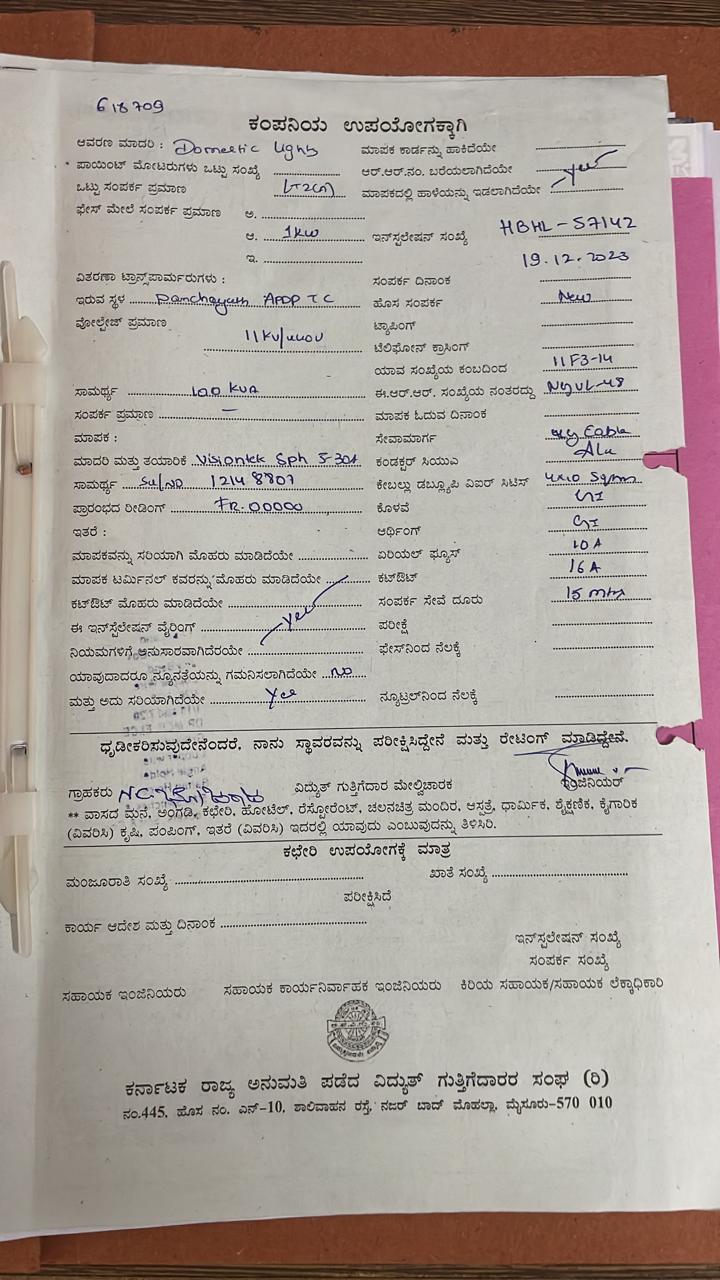 618709
ಕಂಪನಿಯ ಉಪಯೋಗಕ್ಕಾಗಿ
ಆವರಣ ಮಾದರಿ : Domestic Light ಮಾಪಕ ಕಾರ್ಡನ್ನು ಹಾಕಿದೆಯೇ
ಪಾಯಿಂಟ್ ಮೋಟರುಗಳು ಒಟ್ಟು ಸಂಖ್ಯೆ ಆರ್.ಆರ್.ನಂ. ಬರೆಯಲಾಗಿದೆಯೇ yes
ಒಟ್ಟು ಸಂಪರ್ಕ ಪ್ರಮಾಣ ಮಾಪಕದಲ್ಲಿ ಹಾಳೆಯನ್ನು ಇಡಲಾಗಿದೆಯೇ
ಫೇಸ್ ಮೇಲೆ ಸಂಪರ್ಕ ಪ್ರಮಾಣ ಅ.
ಆ. 1KW ಇನ್‌ಸ್ಟಲೇಷನ್ ಸಂಖ್ಯೆ HBHL-57142
ಇ. 19.12.2023
ವಿತರಣಾ ಟ್ರಾನ್ಸ್‌ಪಾರ್ಮರುಗಳು : ಸಂಪರ್ಕ ದಿನಾಂಕ
ಇರುವ ಸ್ಥಳ Panchayath APDP TC ಹೊಸ ಸಂಪರ್ಕ New
ವೋಲ್ಟೇಜ್ ಪ್ರಮಾಣ 11KV/440V ಟ್ಯಾಪಿಂಗ್
ಟೆಲಿಫೋನ್ ಕ್ರಾಸಿಂಗ್
ಯಾವ ಸಂಖ್ಯೆಯ ಕಂಬದಿಂದ 11F3-14
ಸಾಮರ್ಥ್ಯ 100 KVA ಈ.ಆರ್.ಆರ್. ಸಂಖ್ಯೆಯ ನಂತರದ್ದು
ಸಂಪರ್ಕ ಪ್ರಮಾಣ — ಮಾಪಕ ಓದುವ ದಿನಾಂಕ
ಮಾಪಕ : ಸೇವಾಮಾರ್ಗ Cable
ಮಾದರಿ ಮತ್ತು ತಯಾರಿಕೆ Visiontek Sph 5-30A ಕಂಡಕ್ಟರ್ ಸಿಯುಎ Alu
ಸಾಮರ್ಥ್ಯ Sl/No 12148807 ಕೇಬಲ್ಲು ಡಬ್ಲ್ಯೂಪಿ ವಿಐರ್ ಸಿಟಿಸ್ 4x10 Sqmm
ಪ್ರಾರಂಭದ ರೀಡಿಂಗ್ FR.00000 ಕೊಳವೆ GI
ಇತರೆ : ಅರ್ಥಿಂಗ್ GI
ಮಾಪಕವನ್ನು ಸರಿಯಾಗಿ ಮೊಹರು ಮಾಡಿದೆಯೇ ಏರಿಯಲ್ ಫ್ಯೂಸ್ 10A
ಮಾಪಕ ಟರ್ಮಿನಲ್ ಕವರನ್ನು ಮೊಹರು ಮಾಡಿದೆಯೇ ಕಟ್‌ಔಟ್ 16A
ಕಟ್‌ಔಟ್ ಮೊಹರು ಮಾಡಿದೆಯೇ yes ಸಂಪರ್ಕ ಸೇವೆ ದೂರು 15 mtr
ಈ ಇನ್‌ಸ್ಟೆಲೇಷನ್ ವೈರ್ರಿಂಗ್ ಪರೀಕ್ಷೆ
ನಿಯಮಗಳಿಗೆ ಅನುಸಾರವಾಗಿದೆರೆಯೇ ಫೇಸ್‌ನಿಂದ ನೆಲಕ್ಕೆ
ಯಾವುದಾದರೂ ನ್ಯೂನತ್ರೆಯನ್ನು ಗಮನಿಸಲಾಗಿದೆಯೇ No
ಮತ್ತು ಅದು ಸರಿಯಾಗಿದೆಯೇ Yes ನ್ಯೂಟ್ರಲ್‌ನಿಂದ ನೆಲಕ್ಕೆ
ಧೃಡೀಕರಿಸುವುದೇನೆಂದರೆ, ನಾನು ಸ್ಥಾವರವನ್ನು ಪರೀಕ್ಷಿಸಿದ್ದೇನೆ ಮತ್ತು ರೇಟಿಂಗ್ ಮಾಡಿದ್ದೇನೆ.
ಗ್ರಾಹಕರು ವಿದ್ಯುತ್ ಗುತ್ತಿಗೆದಾರ ಮೇಲ್ವಿಚಾರಕ ಇಂಜಿನಿಯರ್
** ವಾಸದ ಮನೆ, ಅಂಗಡಿ, ಕಛೇರಿ, ಹೋಟೆಲ್, ರೆಸ್ಟೋರೆಂಟ್, ಚಲನಚಿತ್ರ ಮಂದಿರ, ಆಸ್ಪತ್ರೆ, ಧಾರ್ಮಿಕ, ಶೈಕ್ಷಣಿಕ, ಕೈಗಾರಿಕ
(ವಿವರಿಸಿ) ಕೃಷಿ, ಪಂಪಿಂಗ್, ಇತರೆ (ವಿವರಿಸಿ) ಇದರಲ್ಲಿ ಯಾವುದು ಎಂಬುವುದನ್ನು ತಿಳಿಸಿರಿ.
ಕಛೇರಿ ಉಪಯೋಗಕ್ಕೆ ಮಾತ್ರ
ಮಂಜೂರಾತಿ ಸಂಖ್ಯೆ ಖಾತೆ ಸಂಖ್ಯೆ
ಪರೀಕ್ಷಿಸಿದೆ
ಕಾರ್ಯ ಆದೇಶ ಮತ್ತು ದಿನಾಂಕ
ಇನ್‌ಸ್ಟಲೇಷನ್ ಸಂಖ್ಯೆ
ಸಂಪರ್ಕ ಸಂಖ್ಯೆ
ಸಹಾಯಕ ಇಂಜಿನಿಯರು ಸಹಾಯಕ ಕಾರ್ಯನಿರ್ವಾಹಕ ಇಂಜಿನಿಯರು ಕಿರಿಯ ಸಹಾಯಕ/ಸಹಾಯಕ ಲೆಕ್ಕಾಧಿಕಾರಿ
ಕರ್ನಾಟಕ ರಾಜ್ಯ ಅನುಮತಿ ಪಡೆದ ವಿದ್ಯುತ್ ಗುತ್ತಿಗೆದಾರರ ಸಂಘ (ರಿ)
ನಂ.445, ಹೊಸ ನಂ. ಎನ್-10, ಶಾಲಿವಾಹನ ರಸ್ತೆ, ನಜರ್ ಬಾದ್ ಮೊಹಲ್ಲಾ, ಮೈಸೂರು-570 010